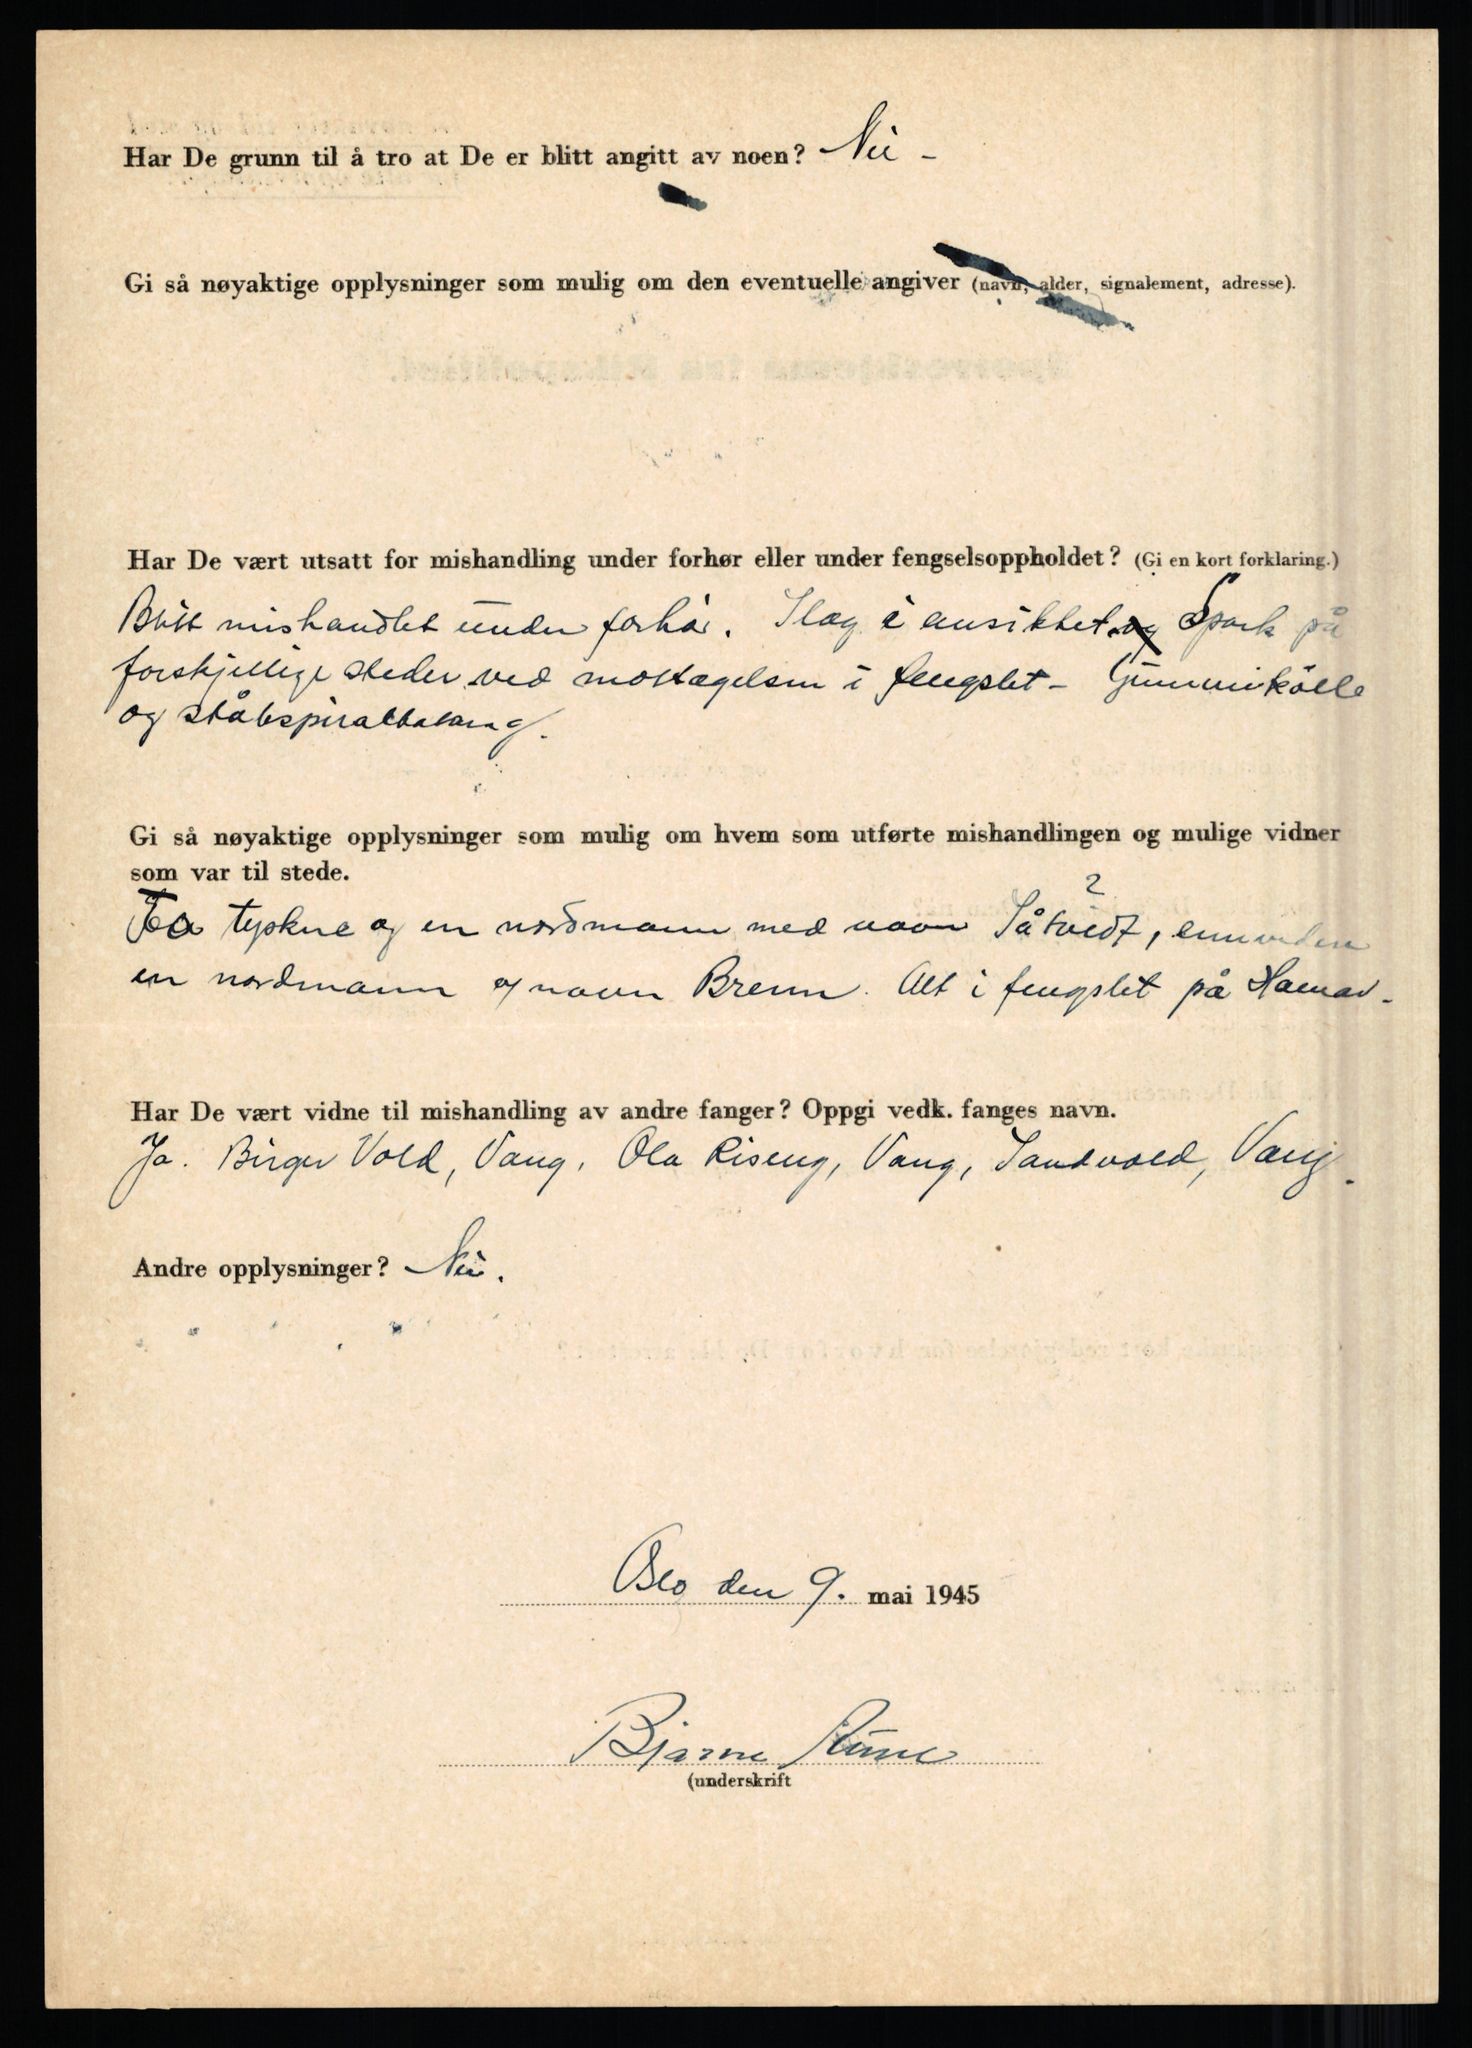 Har De grunn til å tro at De er blitt angitt av noen? Nei -
Gi så nøyaktige opplysninger som mulig om den eventuelle angiver (navn, alder, signalement, adresse).
Har De vært utsatt for mishandling under forhør eller under fengselsoppholdet? (Gi en kort forklaring.)
Blitt mishandlet under forhør. Slag i ansiktet. og Spark på
forskjellige steder ved mottagelsen i fengslet - Gummikølle
og stålspiralbatang.
Gi så nøyaktige opplysninger som mulig om hvem som utførte mishandlingen og mulige vidner
som var til stede.
To tyskne og en nordmann med navn Såtvedt?, ennviden
en nordmann og navn Brenn. Alt i fengslet på Hamar.
Har De vært vidne til mishandling av andre fanger? Oppgi vedk. fanges navn.
Ja. Birger Vold, Vang, Ola Riseng, Vang, Sandvold, Vang.
Andre opplysninger? Nei.
Oslo den 9. mai 1945
Bjarne
(underskrift